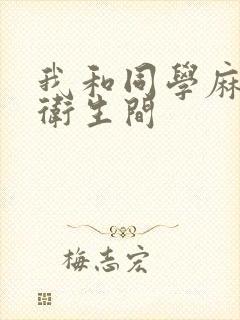 我和同學麻
衛生間
梅志宏